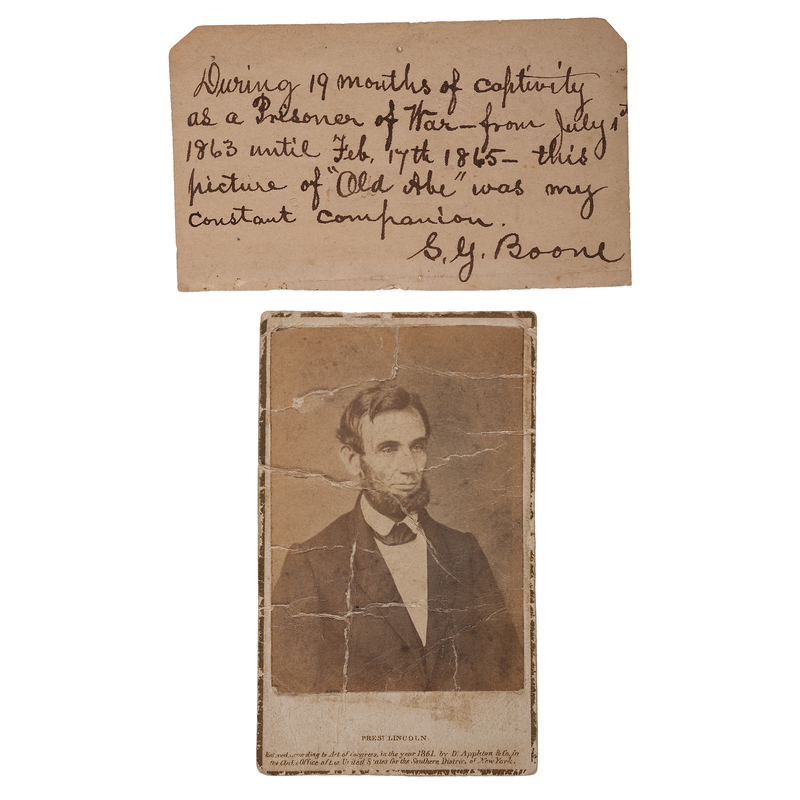 During 19 months of captivity
as a Prisoner of War — from July 1st
1863 until Feb. 17th 1865 — this
picture of "Old Abe" was my
constant companion.
S. G. Boone
PREST LINCOLN.
Entered according to Act of Congress, in the year 1861, by D. Appleton & Co, in
the Clerk's Office of the United States for the Southern District of New York.